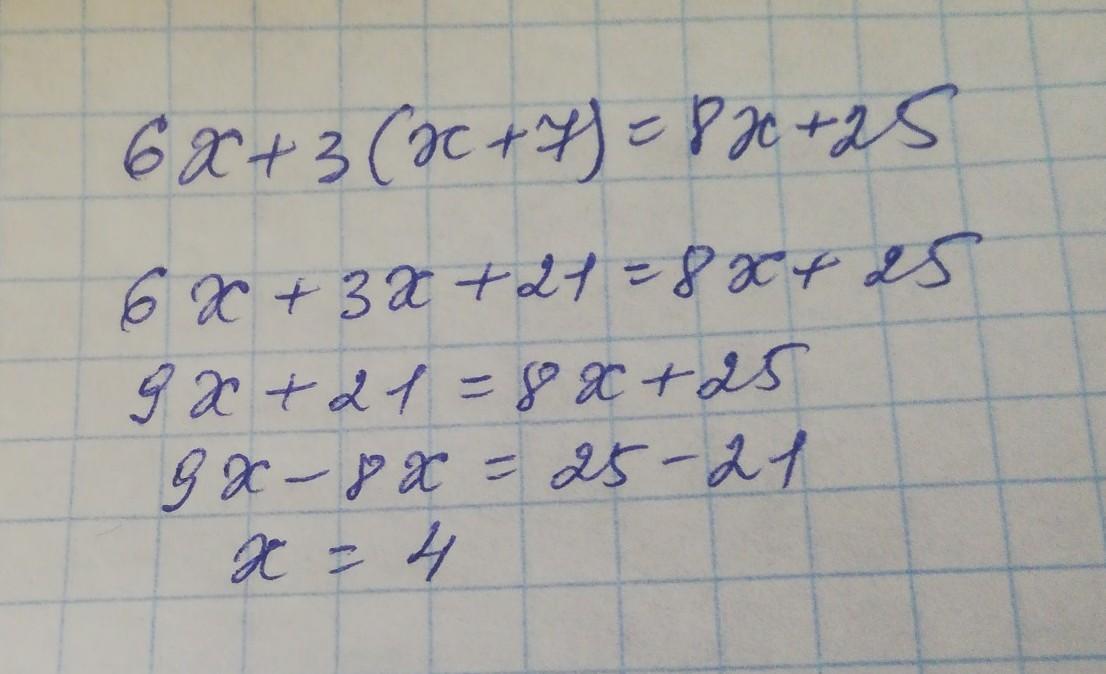 6x+3(x+7)=8x+25
6x+3x+21=8x+25
9x+21=8x+25
9x-8x=25-21
x=4